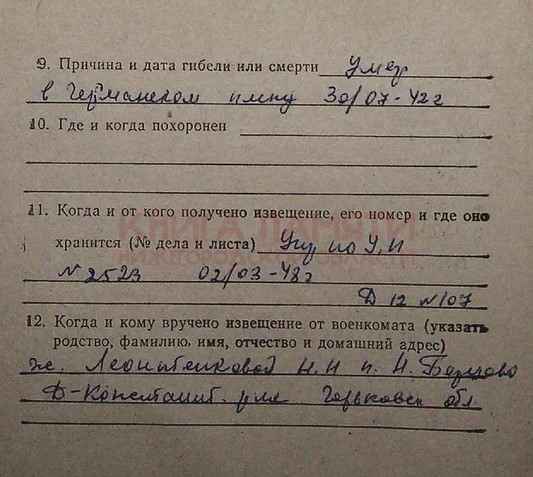 9. Причина и дата гибели или смерти умер
в Германском плену 30/07-42г
10. Где и когда похоронен
11. Когда и от кого получено извещение, его номер и где оно
КНИГА ПАМЯТИ
хранится (№ дела и листа)
НИЖЕГОРОДСКОЙ ОБЛАСТИ
N 2523 02/03-48г
Д 12 N 107
12. Когда и кому вручено извещение от военкомата (указать
родство, фамилию, имя, отчество и домашний адрес)
ж. Леонтенковой Н.Н п. Н.
Д-Констант. р-на Горьковск обл.